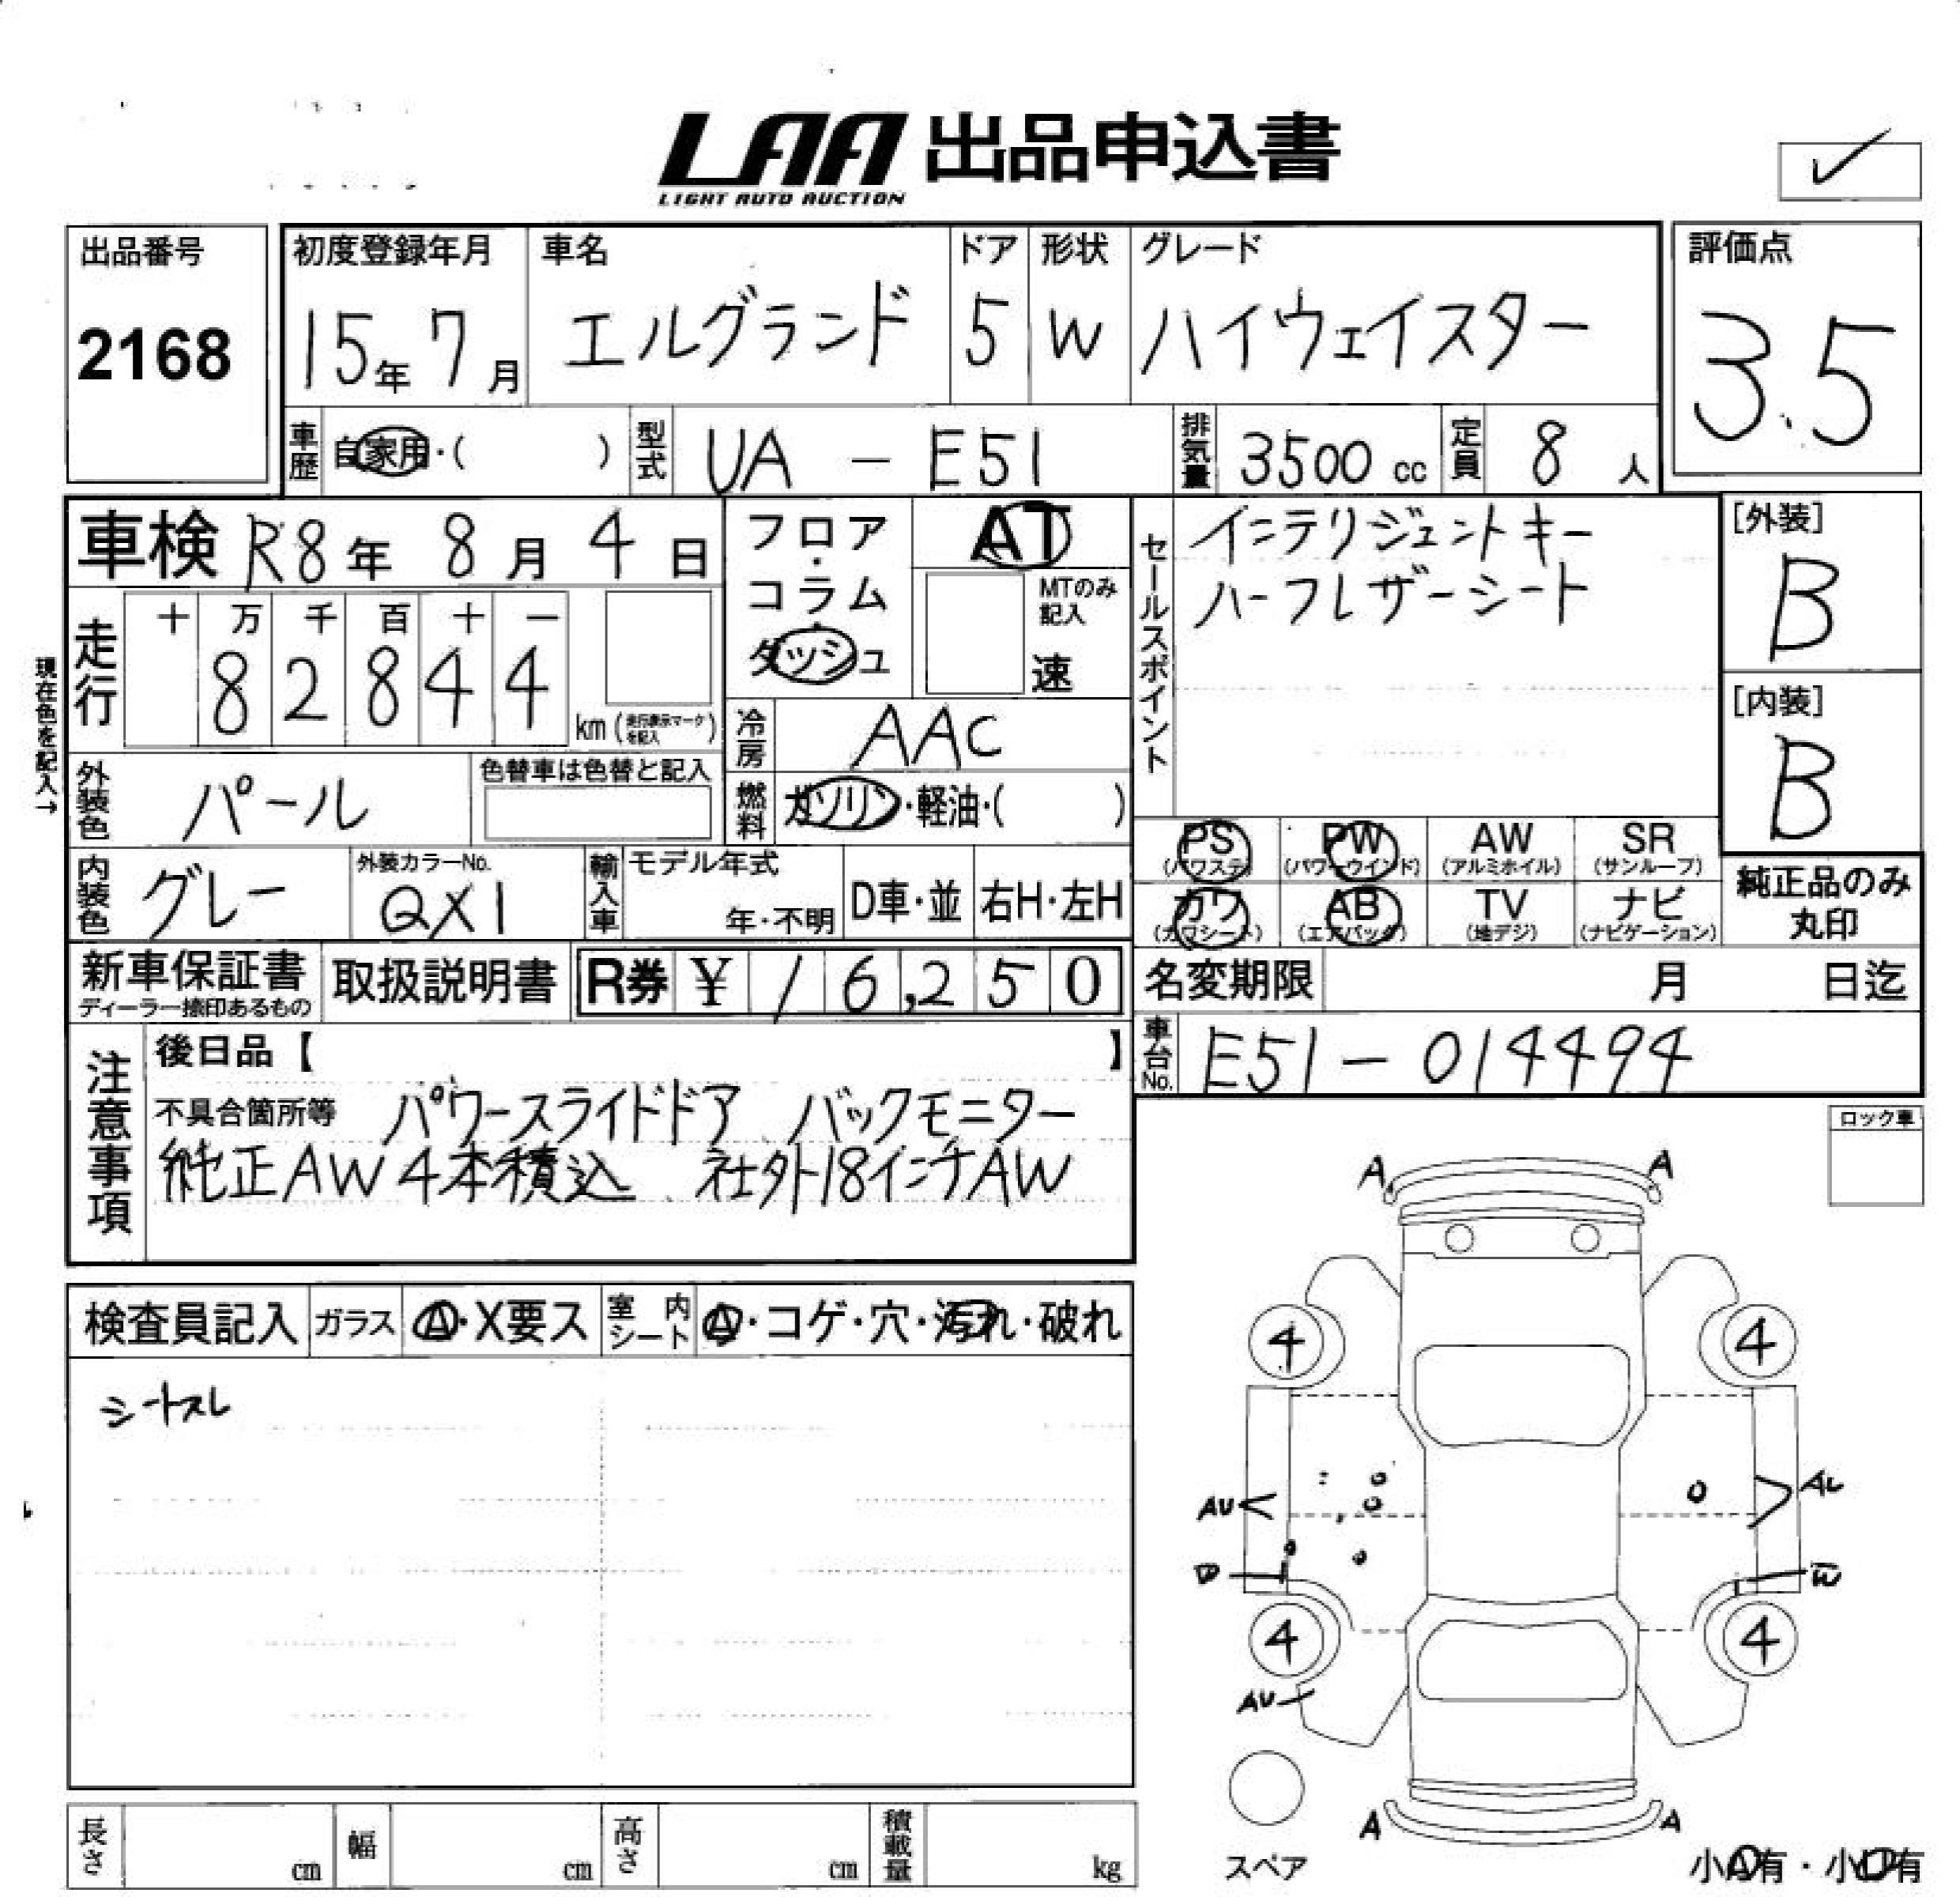 LAA 出品申込書
LIGHT AUTO AUCTION
出品番号
2168
初度登録年月
15年 7月
車名
エルグランド
ドア
5
形状
W
グレード
ハイウェイスター
評価点
3.5
車歴 自家用・( )
型式 UA - E51
排気量 3500 cc
定員 8 人
車検 R8年 8月 4日
現在色を記入→
走行
十 万 千 百 十 一
8 2 8 4 4
km (走行表示マークを記入)
外装色 パール
色替車は色替と記入
内装色 グレー
外装カラーNo.
QX1
フロア・コラム・ダッシュ
AT
MTのみ記入
速
冷房 AAC
燃料 ガソリン・軽油・( )
輸入車
モデル年式
年・不明
D車・並
右H・左H
セールスポイント
インテリジェントキー
ハーフレザーシート
[外装]
B
[内装]
B
PS (パワステ)
PW (パワーウインド)
AW (アルミホイル)
SR (サンルーフ)
カワ (カワシート)
AB (エアバッグ)
TV (地デジ)
ナビ (ナビゲーション)
純正品のみ
丸印
新車保証書
ディーラー捺印あるもの
取扱説明書
R券 ¥ 16,250
名変期限 月 日迄
車台No. E51-014494
注意事項
後日品【 】
不具合箇所等 パワースライドドア バックモニター
純正AW4本積込 社外18インチAW
ロック車
検査員記入
ガラス A・X要ス
室内シート A・コゲ・穴・汚れ・破れ
シートスレ
A A
4 4
AU
4 4
AU
A A
スペア
小A有・小U有
長さ cm
幅 cm
高さ cm
積載量 kg